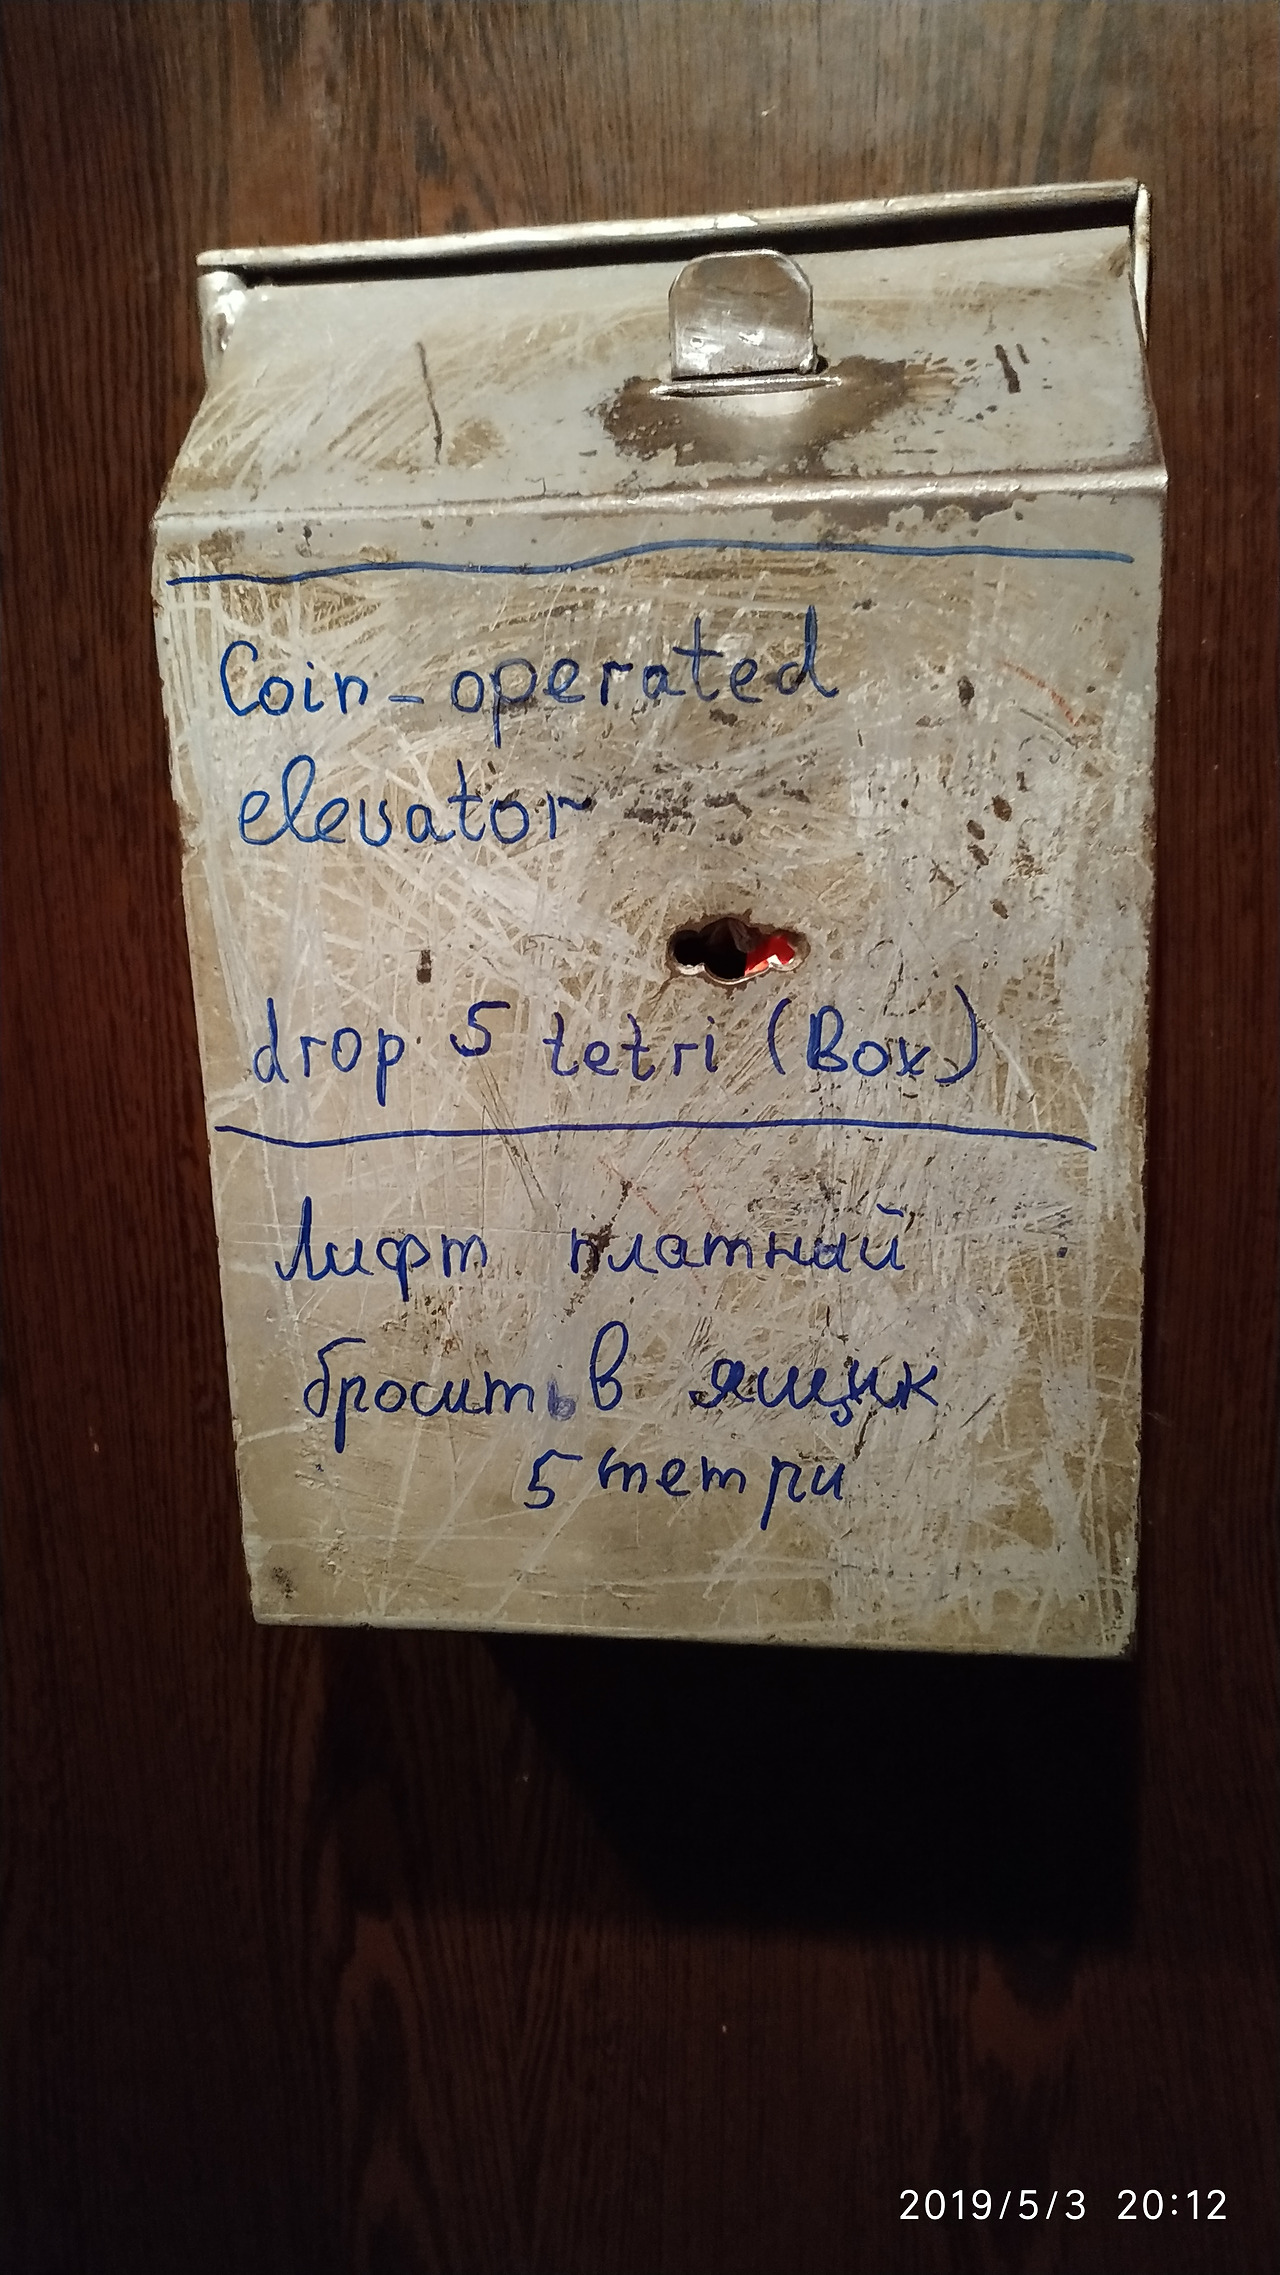 Coin-operated
elevator
drop 5 tetri (Box)
Лифт платнай
бросить в ящик
5 тетри
2019/5/3 20:12